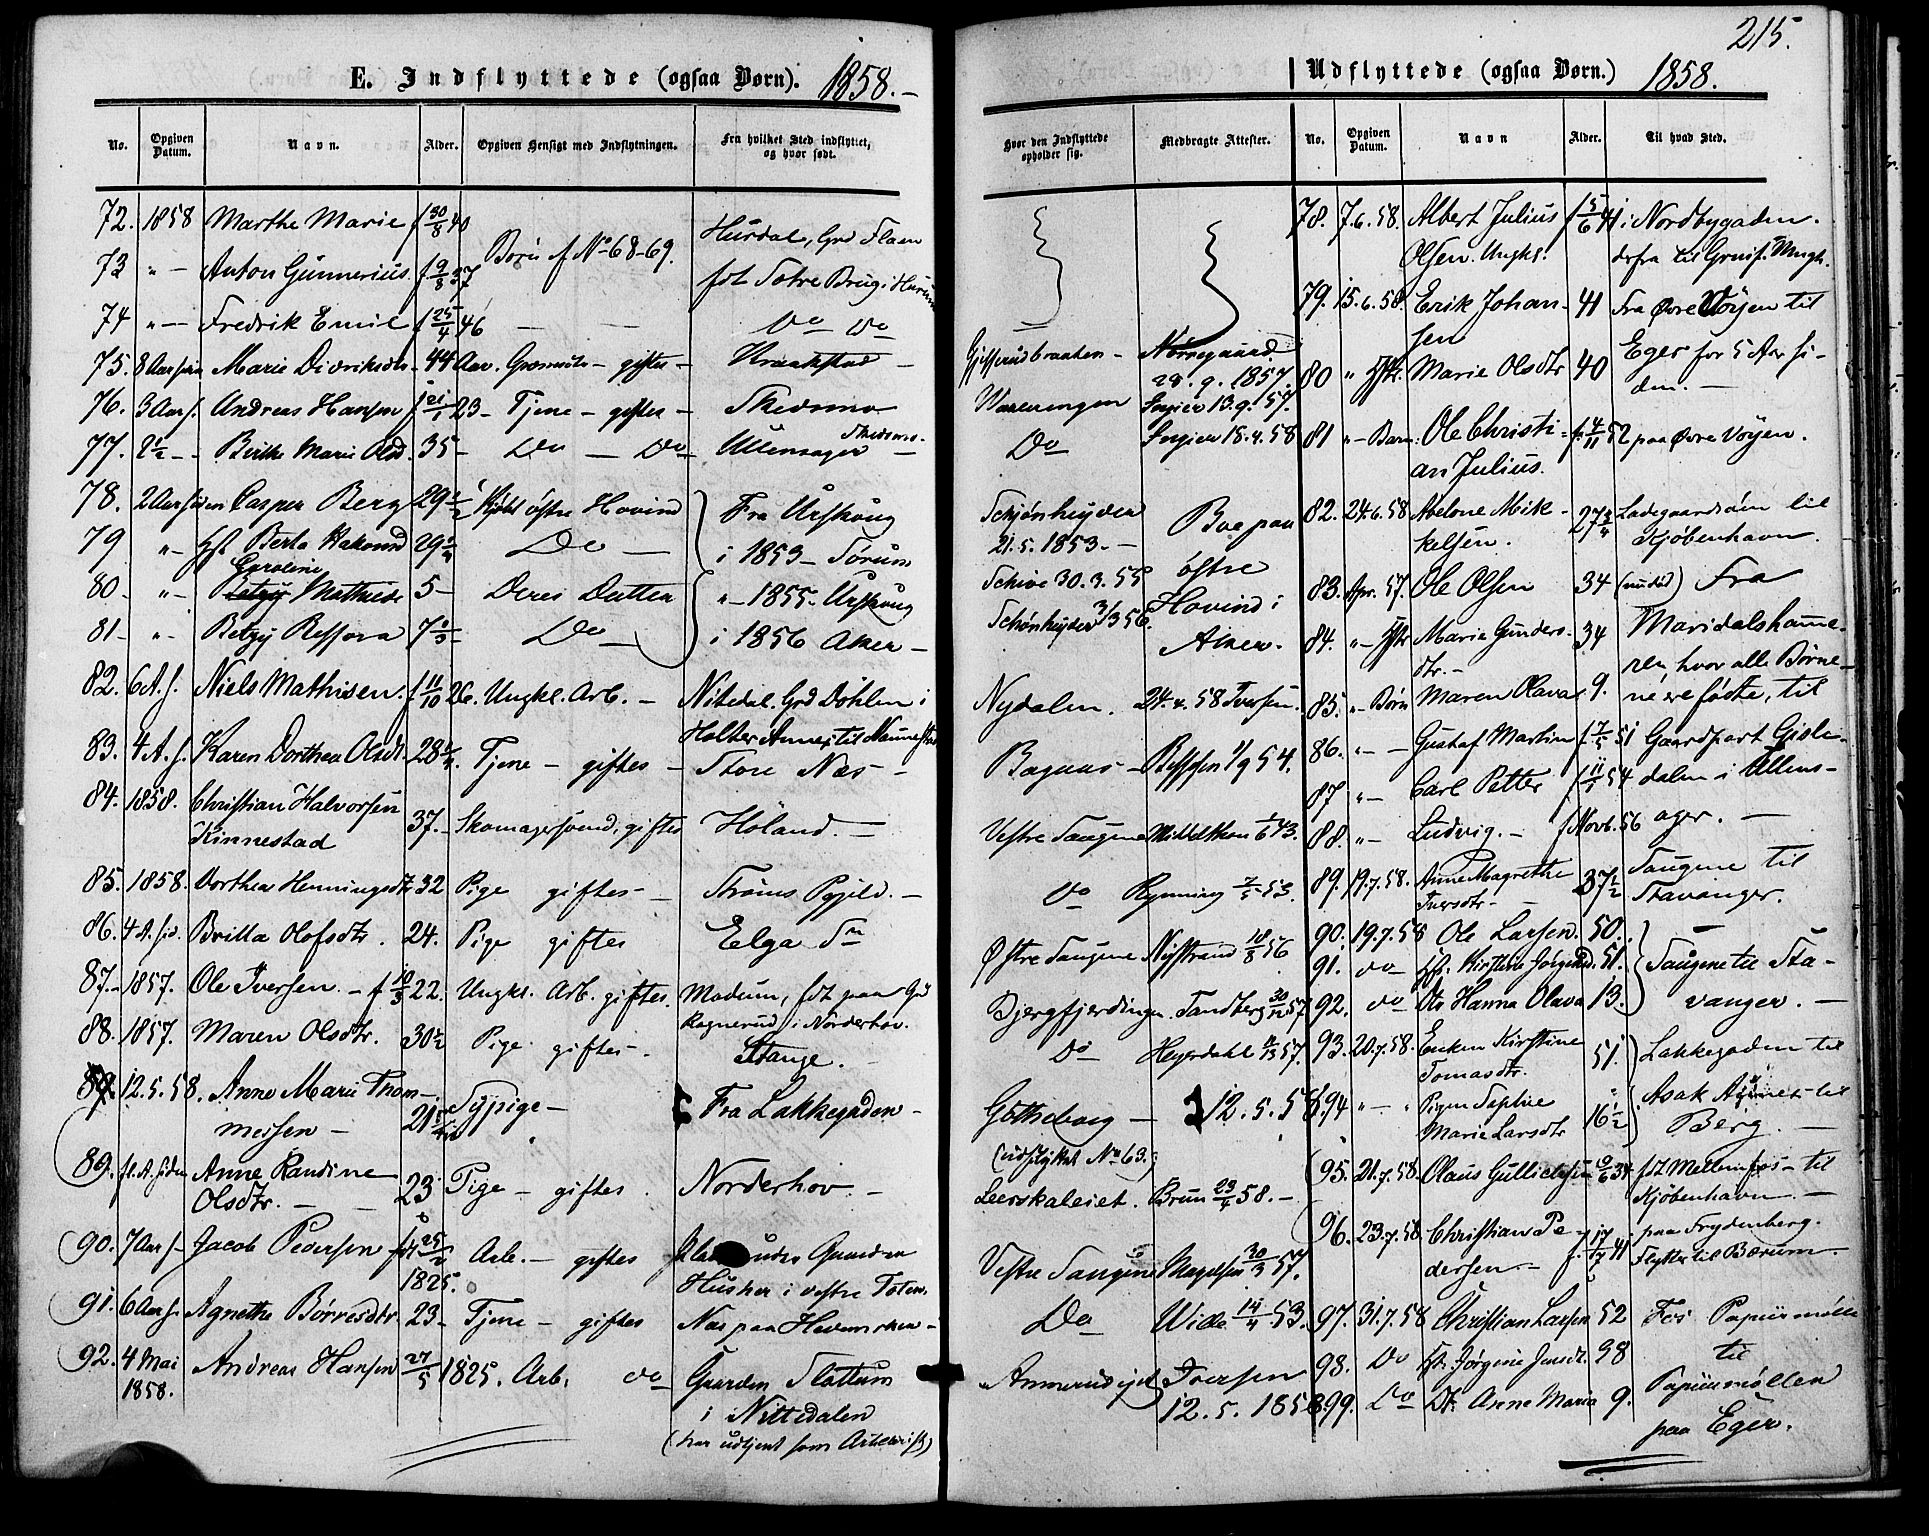 215.
E. Indflyttede (ogsaa Børn). 1858.-
No. Opgiven Datum. Navn. Alder. Opgiven Hensigt med Indflytningen. Fra hvilket Sted indflyttet, og hvor født.
72. 1858 Marthe Marie f 30/8 40 Hurdal, Grd Flaen
73 " - Anton Gunnerius f 9/8 37 Børn af No 68-69. fdt Totre Brug i Hurum
74 " - Fredrik Emil f 25/4 46 — — Do Do
75. 8 Aar siden Marie Didriksdtr 44 Aar. - giftes - Kraakstad -
76. 3 Aar s. Andreas Hansen f 21/1 23 - Tjene - giftes - Skedsmo
77. 2½ - - Birthe Marie Olsd. 35 - Do - Do Ullensager Skedsmo -
78. 2 Aar siden Casper Berg 29½ Kjøbt østre Hovind Fra Urskoug
79 " - Hst Berta Hakonsd 29¼ Do — i 1853 - Sørum
80 - " - Caroline Betzy Mathilde 5 - Deres Datter " - 1855 - Urskoug
81 - " - Betzy Ressora 7⅓ Do — i 1856 Aker -
82. 6 A. s. Niels Mathisen. f 11/10 26. Ungkl. Arb. - Nitedal. Grd Døhlen i
83. 4 A. s. Karen Dorthea Olsdt. 28¼. Tjene - giftes - Holter Annex til Nannestad Store Næs -
84. 1858. Christian Halvorsen Kinnestad 37. - Skomagersvend, giftes Høland. -
85. 1858. Dorthea Henningsdt. 32 Pige giftes - Strøms -
86. 4 A. sid. Britta Olofsdtr. 24. Pige giftes Elga Sn
87. - 1857. Ole Iversen. - f 10/3 22. Ungkl. Arb. giftes. Modum, fdt paa Grd Ragnerud i Norderhov.
88. 1857. Maren Olsdtr. 30½ Pige giftes -. Stange.
89. 12.5.58. Anne Marie Thommesen - 21 Sypige - Fra Lakkegaden -
89. fl. A. siden Anne Randine Olsdtr. - 23 Pige - giftes. Norderhov. -
90. 7 Aar s - Jacob Pedersen f 25/2 1825. Arb. - giftes under Gaarden Husker i vestre Toten.
91. 6 Aar s. Agnethe Børresdtr 23 - Tjene - giftes Næs paa Hedemarken -
92. 4 Mai 1858. Andreas Hansen 27/5 1825. Arb. do Gaarden Slattum
i Nittedalen
(har udtjent som Artillerist)
Hvor den Indflyttede opholder sig. Medbragte Attester.
Gjesserudbraaten - Nørregaard 29.9.1857.
Waalerengen 13.9.57.
Do 18.4.58
Schjønheyder 21.5.1853. - Boe paa
Schive 30.3.55 østre
Schønheyder 3/3 56. Hovind i
Aker.
Nydalen. 24.4.58 Iversen.
Bagaas - 1/9 54.
Vestre Saugene 1/6 43.
Do Rynning 7/5 53.
Østre Saugene Nystrand 18/8 56
Bjergfjerdingen. Tandberg 30/12 57
Do Heyerdahl 57.
Gøtheborg - 12.5.58.
(udflyttet No 63.)
Leerskaleiet. Brun 23/4 58. -
Vestre Saugene Magelsen 30/3 57.
Do Wide 14/4 53.
Ammerudejet Iversen
12.5.1858
Udflyttede (ogsaa Børn.) 1858.
No. Opgiven Datum. Navn Alder. Til hvad Sted.
78. 7.6.58. Albert Julius Olsen. Ungkl. f 5/6 41 i Nordbygaden.
79. 15.6.58. Erik Johansen 41 Fra Øvre Vøyen til
80 " Hstr. Marie Olsdtr 40 Eger for 5 Aar siden. -
81 " - Barn. Ole Christian Julius. f. 4/11 52 paa Øvre Vøyen.
82. 24.6.58 Abelone Mikkelsen. 27 Ladegaardsøen til Kjøbenhavn.
83. Apr. 57. Ole Olsen 34 Fra
84. " - Hstr Marie Gundersdtr. - 34 Maridalshammeren, hvor alle Børnene
85. " - Børn Maren Olava 9. ere fødte, til
86. " - - Gustaf Martin f 7/5 51 Gaardpart Gisledalen i Ullensager. -
87 " - Carl Petter f 11/1 54
88. " - Ludvig. - f Novb. 56
89. 19.7.58. Anne Magrethe Iversdtr - 37½ Saugene til Stavanger.
90. 19.7.58 Ole Larsen. 50.
91. do Hst. Kirstine Jørgensd. 51. Saugene til Stavanger. -
92. do Dtr Hanna Olava 13.
93. 20.7.58. Enken Kirstine Tomasdtr. 51. Lakkegaden til
94 " - " Pigen Sophie Marie Larsdtr 16½ Asak Annex til Berg. -
95. 21.7.58. Olaus Gullichsen 34. fdt - til Kjøbenhavn. -
96. 23.7.58 Christian Pedersen - f. 17/7 41. paa Frydenberg. Flytter til Bærum. -
97. 31.7.58 Christian Larsen 52 Fos Papiirmølle
98. Do Hst. Jørgine Jensdt. 98 til
99. Do Dtr. Anne Maria 9. Papiirmøllen
paa Eger.